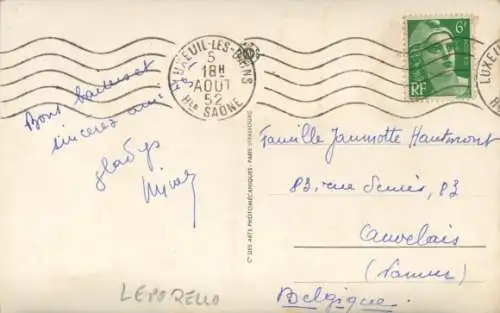 LUXEUIL-LES-BAINS
5
18H
AOUT
52
Hte SAONE
6F
RF
LUXEU
Bons baisers et
sincères amitiés
Gladys
Cie DES ARTS PHOTOMÉCANIQUES - PARIS-STRASBOURG
Famille Jaumotte Hautmont
83, rue 83
Auvelais
(Namur)
Belgique.
LEPORELLO